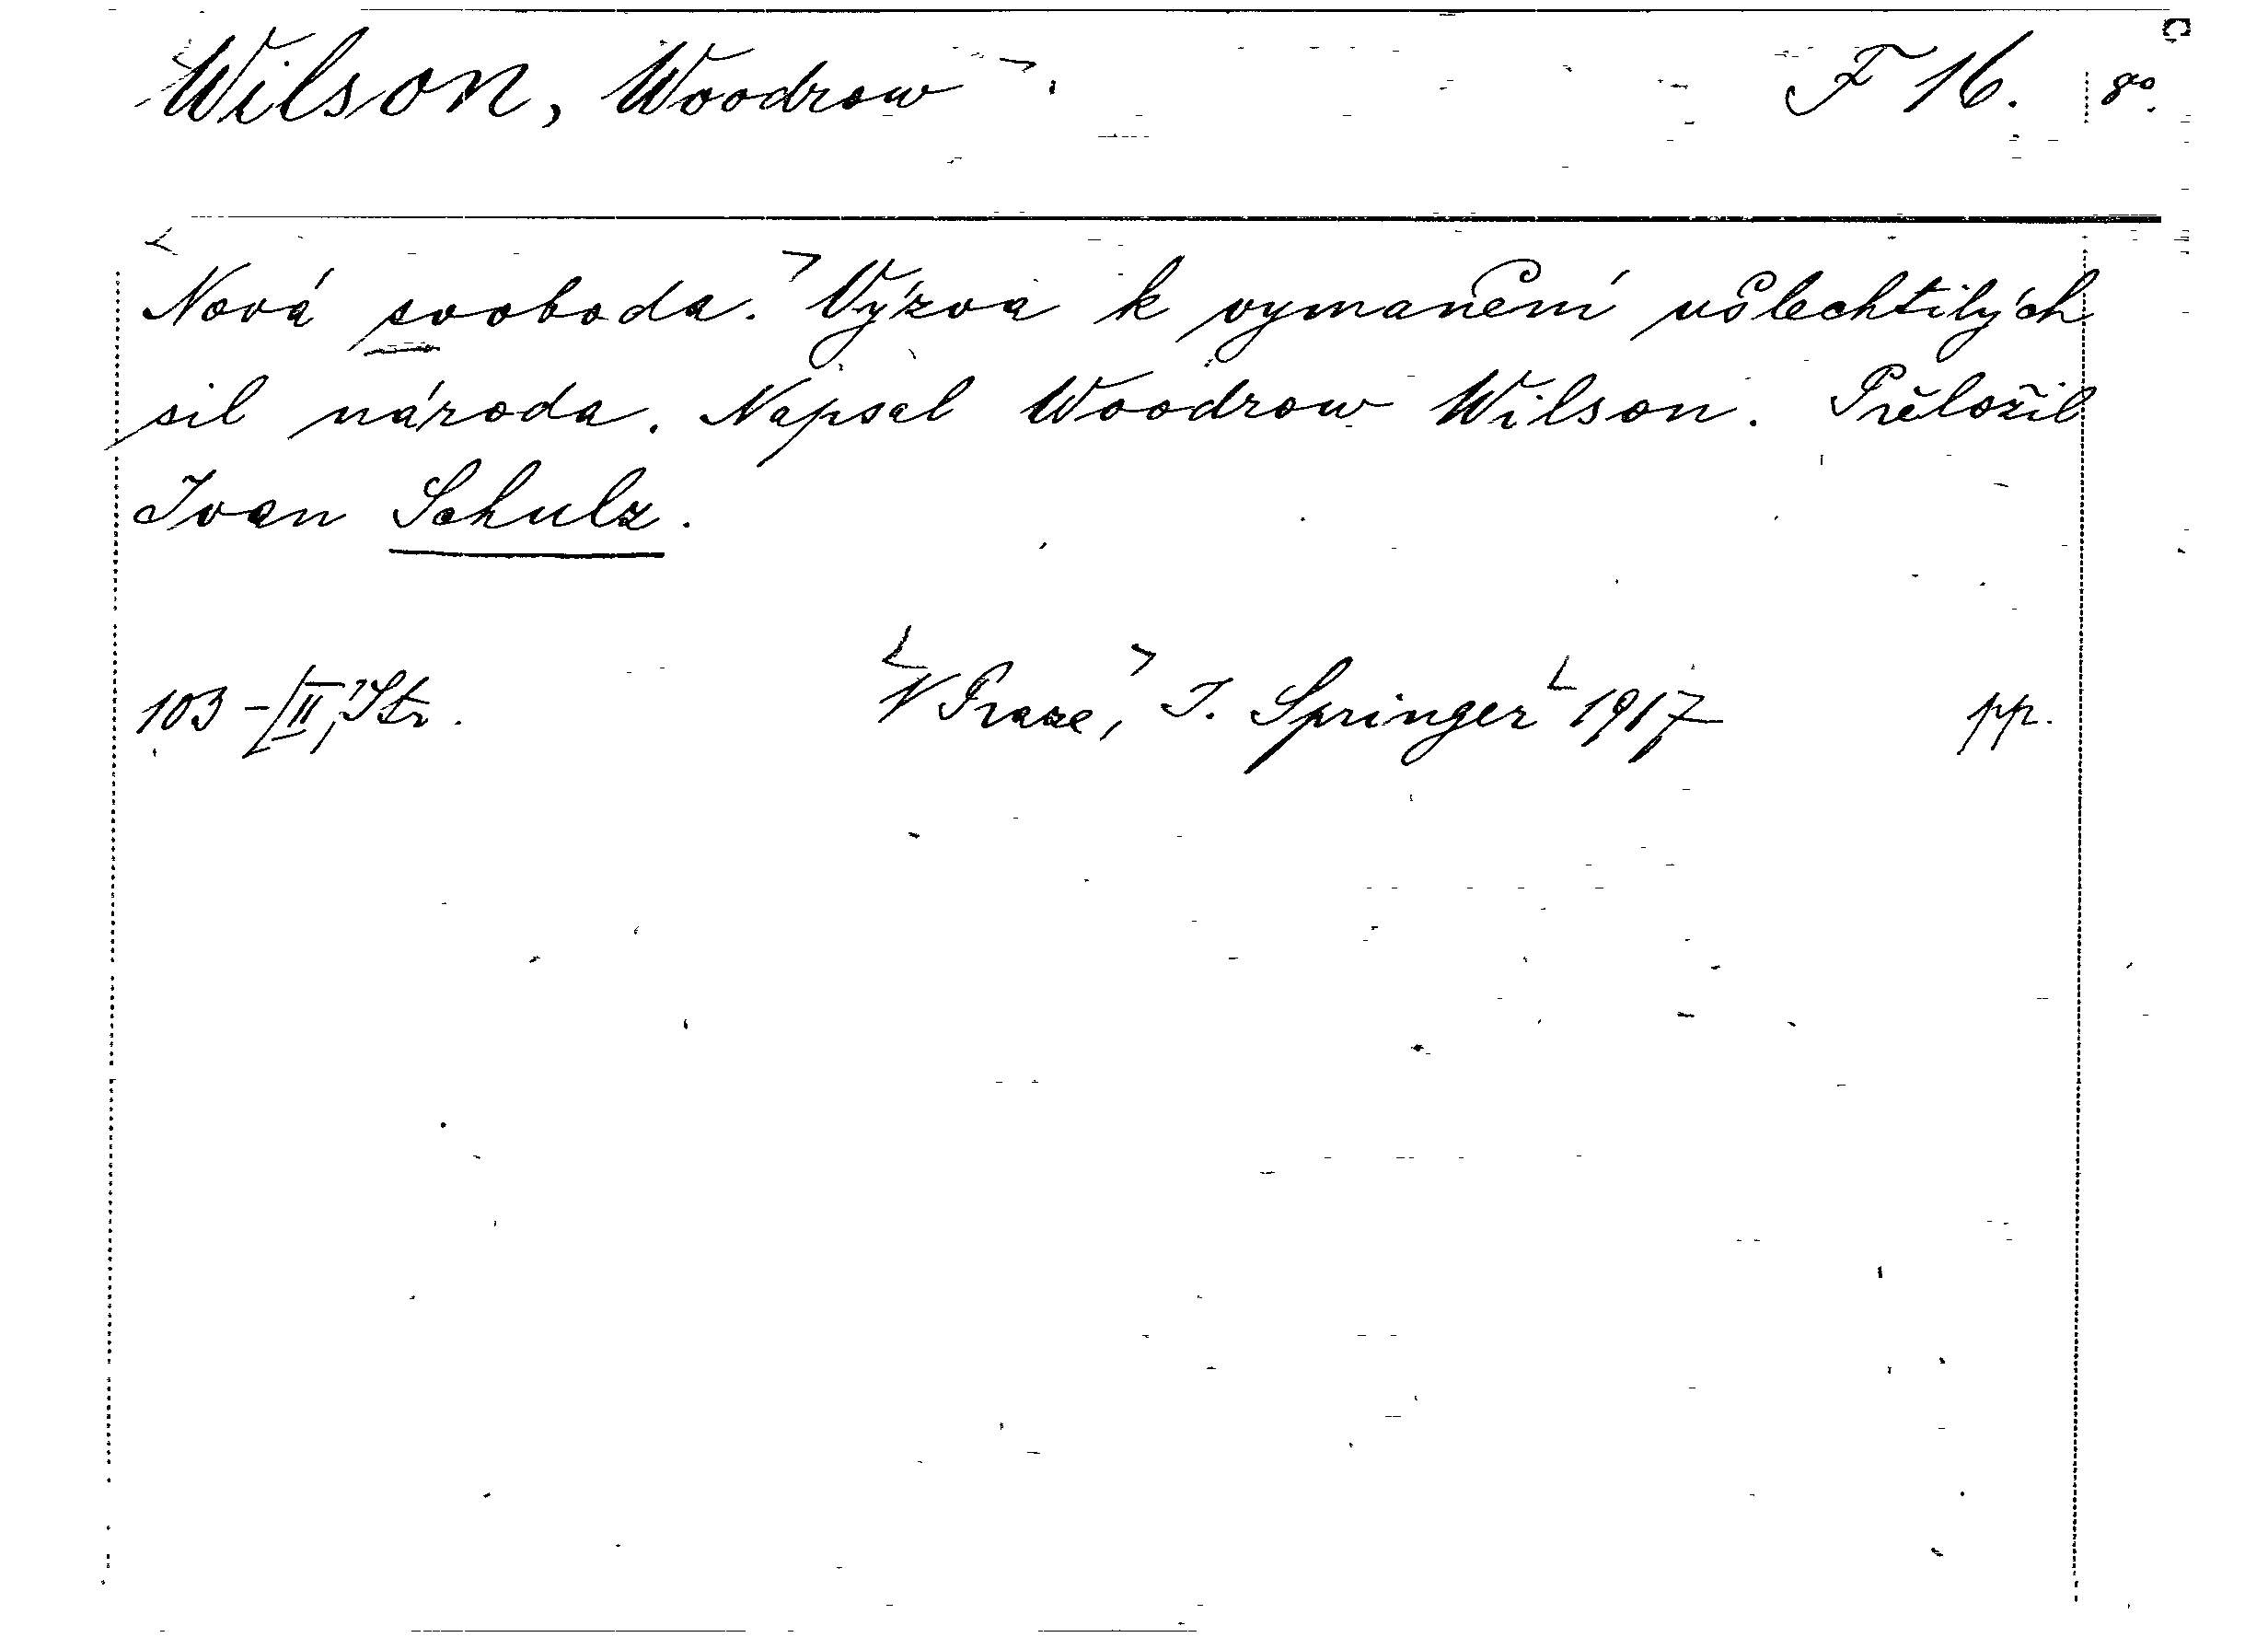 Wilson, Woodrow F 16. 8°.
Nová svoboda. Výzva k vymanění ušlechtilých
sil národa. Napsal Woodrow Wilson. Přeložil
Ivan Schulz.
103 - [II] Str. V Praze, I. Springer 1917 pp.